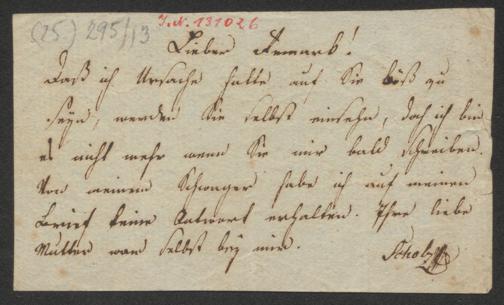 (25.) 295/13
I.N. 131026
Lieber Franck!
Daß ich Ursache hatte auf Sie böß zu
seyn, werden Sie selbst einsehn, doch ich bin
es nicht mehr wenn Sie mir bald schreiben.
Von meinem Schwager habe ich auf meinen
Brief keine Antwort erhalten. Ihre liebe
Mutter war selbst bey mir.
Scholz